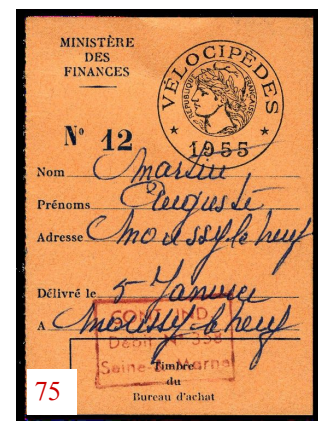 MINISTÈRE
DES
FINANCES
VÉLOCIPÈDES
RÉPUBLIQUE FRANÇAISE
1955
N° 12
Nom Martin
Prénoms Auguste
Adresse Moussy le neuf
Délivré le 5 Janvier
A Moussy le neuf
CONT. IND.
Débit N° 338
Seine-et-Marne
Timbre
du
Bureau d'achat
75